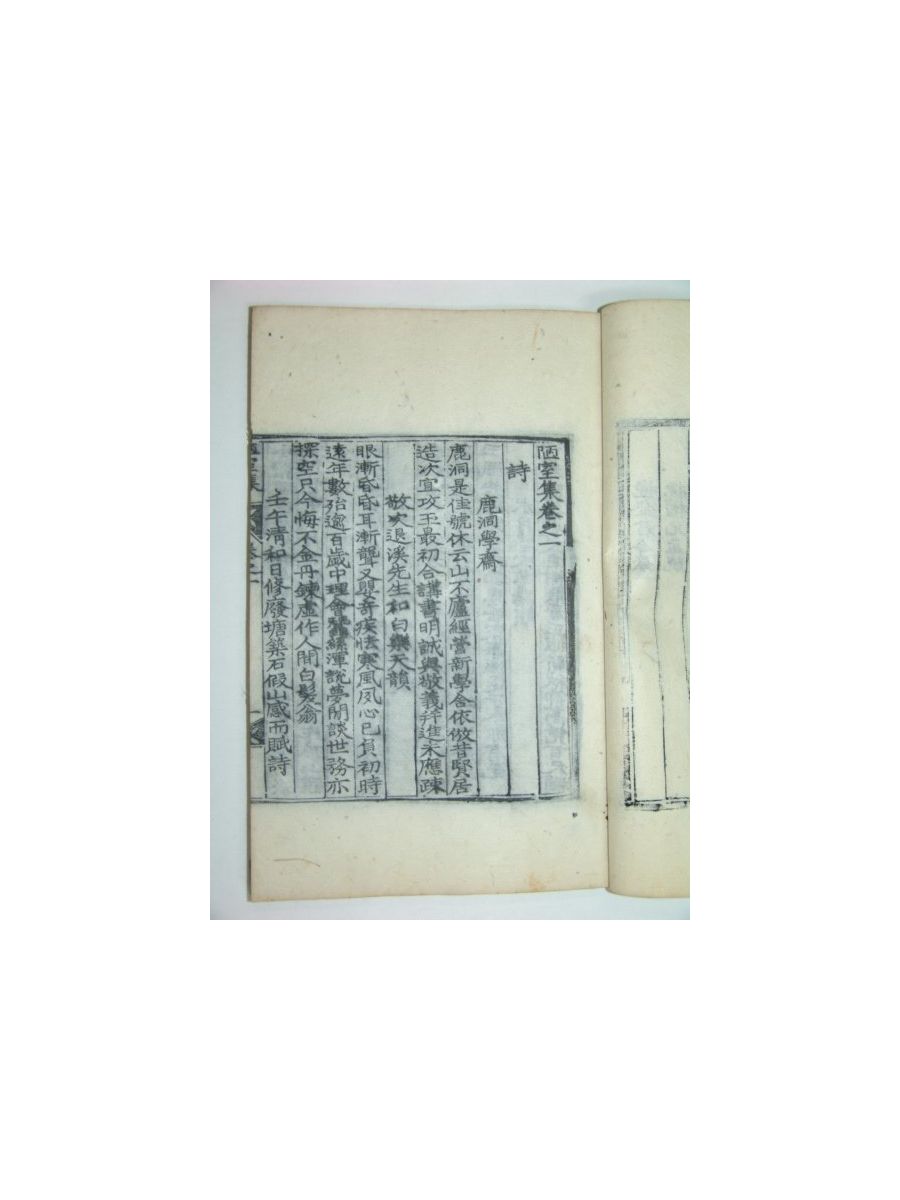 陋室集卷之一
詩
鹿洞學齋
鹿洞是佳號休云山不廬經營新學舍依倣昔賢居
造次宜攻玉最初合講書明誠與敬義并進未應踈
敬次退溪先生和白樂天韻
眼漸昏昏耳漸聾又嬰奇疾怯寒風夙心已負初時
遠年數殆逾百歲中理會蠶絲渾說夢閒談世務亦
探空只今悔不金丹鍊虛作人間白髮翁
壬午清和日修廢塘築石假山感而賦詩